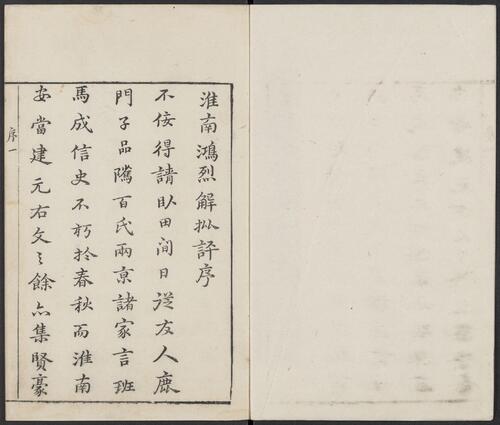 淮南鴻烈解批評序
不佞得請臥田間日從友人鹿
門子品隲百氏兩京諸家言班
馬成信史不朽於春秋而淮南
安當建元右文之餘亦集賢豪
序一